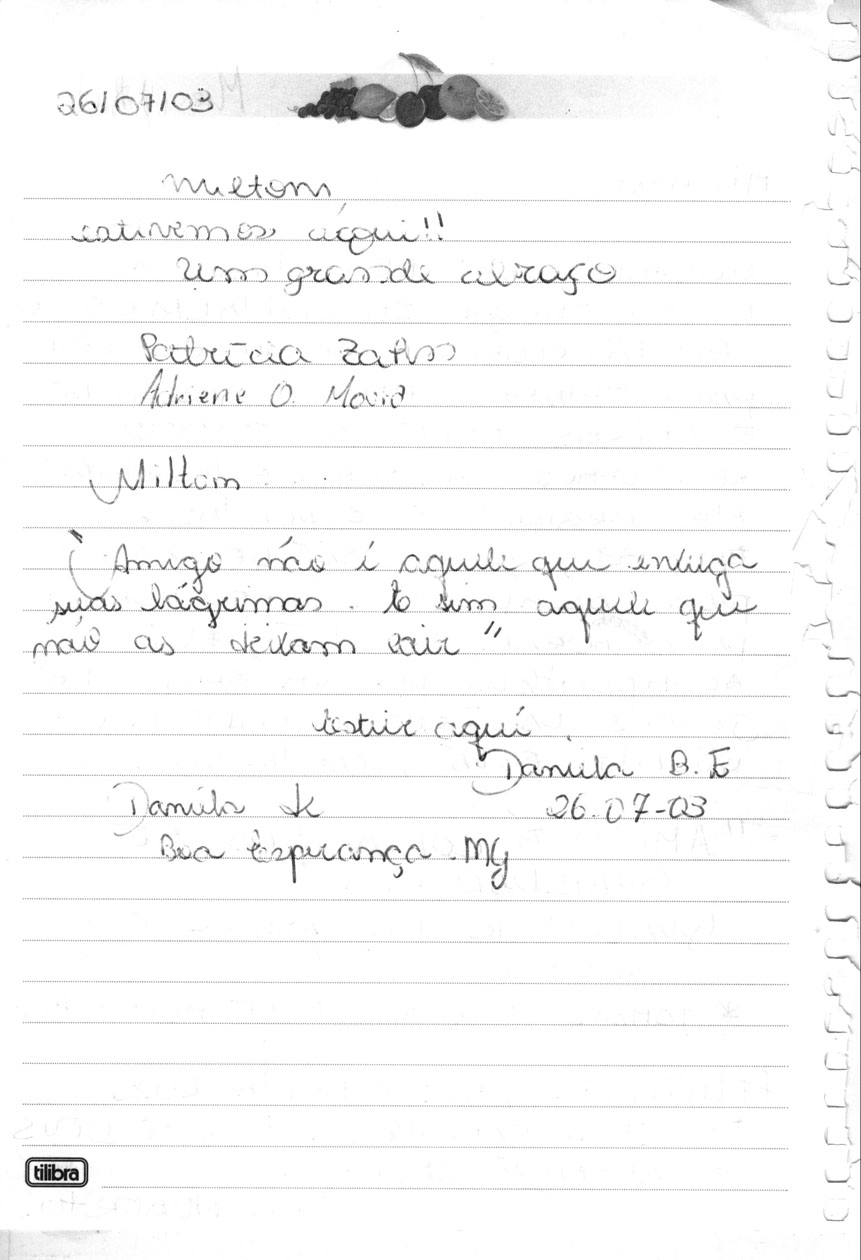 26/07/03
Miltom,
estivemos aqui!!
Um grande abraço
Patrícia
Adriene O.
Miltom
"Amigo não é aquele que enxuga
suas lágrimas. E sim aquele que
não as deixam cair"
Estive aqui.
Danúbia B. E
Danúbia de 26.07-03
Boa Esperança - MG
tilibra